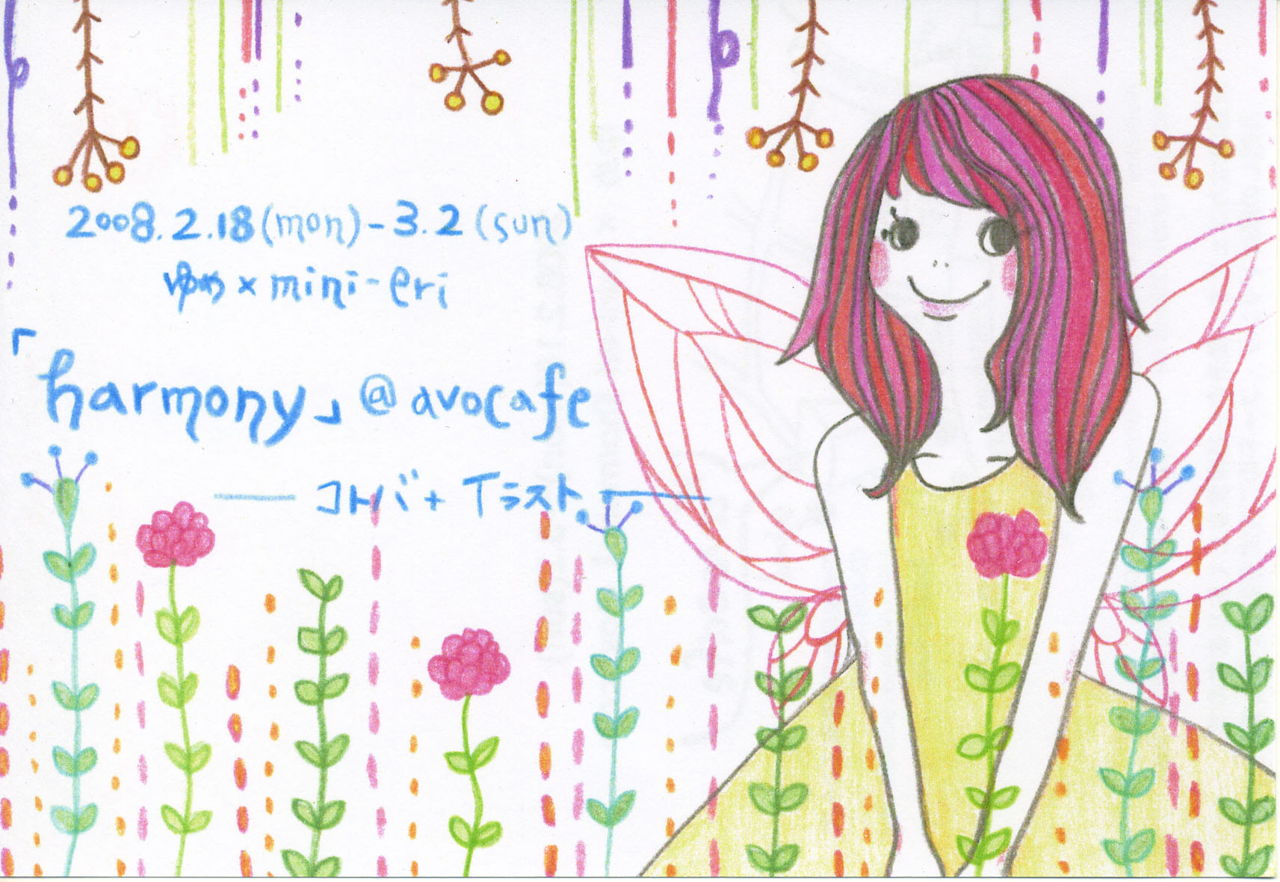 2008.2.18(mon)-3.2(sun)
ゆめ×mini-eri
「harmony」@avocafe
コトバ+イラスト